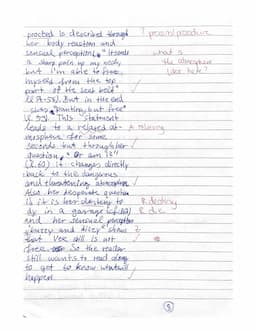 procted is described through
her body reaction and
sensual perception. "It sends
a sharp pain up my neck,
but I'm able to free
myself from the top
part of the seat belt"
(l. 57-58). But in the end
she's "panting, but free"
(l. 59). This statement
leads to a relaxed at-
mosphere for some
seconds but through her
question, "Or am I?"
(l. 60) it changes directly
back to the dangerous
and threatening atmosphere.
Also her desperate question
is it is her destiny to
dy in a garrage
and her sensual perception
"buzzy and dizzy" show
that Vee still is not
free. So the reader
still wants to read along
to get to know what will
happen.
! process/procedure
what is
the atmosphere
like here?
A relaxing
R destiny
R die
5